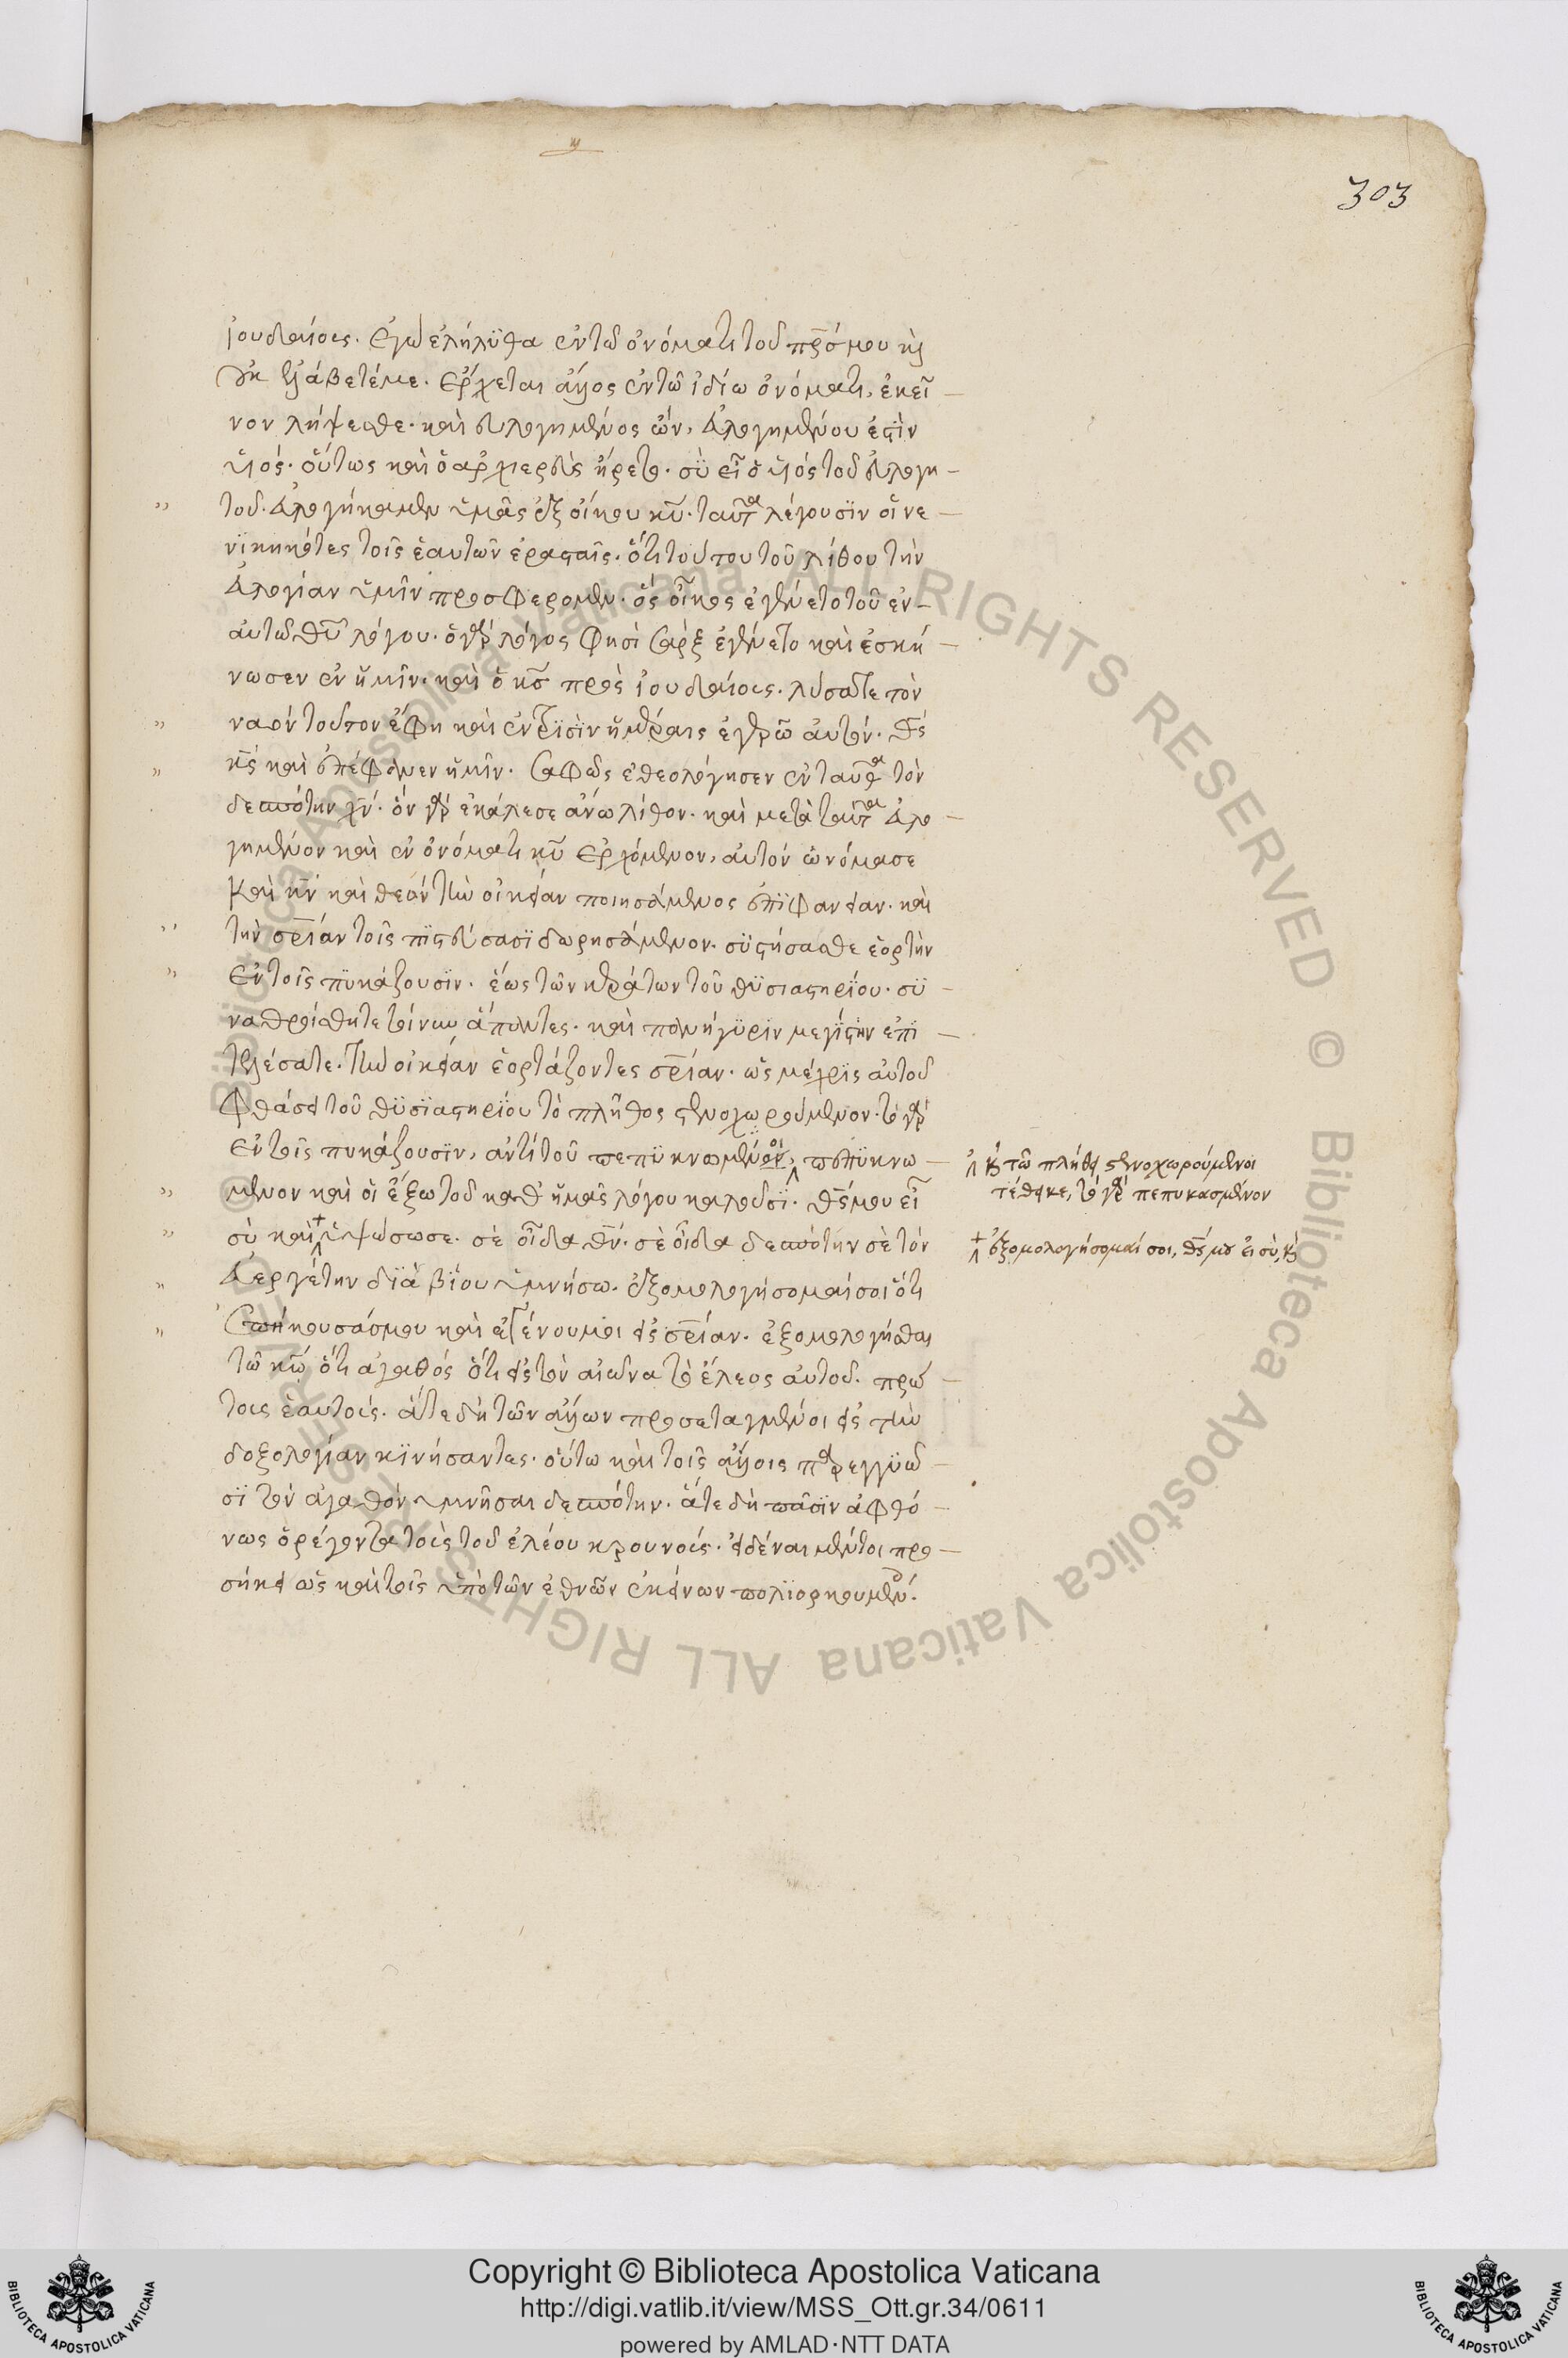 303
ἰουδαίοις. ἐγὼ ἐλήλϋθα ἐν τῶ ὀνόματι τοῦ πρσ μου κὶ
οὐκ ἐλάβετέ με. ἔρχεται ἄλλος ἐν τῶ ἰδίω ὀνόματι, ἐκεῖ
νον λήψεσθε. καὶ εὐλογημένος ὢν, εὐλογημένου ἐστὶν
ὑιός. οὕτως καὶ ὁ ἀρχιερεὺς ἤρετο. σὺ εἶ ὁ ὑιός τοῦ εὐλογη
τοῦ. εὐλογήκαμεν ὑμᾶς ἐξ οἴκου κυ. ταῦτα λέγουσϊν οἱ νε
νϊκηκότες τοῖς ἑαυτῶν ἐρασταῖς. ὅτι τούτου τοῦ λίθου τὴν
εὐλογίαν ὑμῖν προσφερομεν. ὃς οἶκος ἐγένετο τοῦ ἐν
αὐτῶ θυ λόγου. ὁ γὰρ λόγος φησὶ σὰρξ ἐγένετο καὶ ἐσκή
νωσεν ἐν ἡμῖν. καὶ ὁ κσ πρὸς ἰουδαίοις. λύσατε τὸν
ναὸν τοῦτον ἔφη καὶ ἐν τρϊσὶν ἡμέραις ἐγερῶ αὐτόν. θς
κς καὶ ἐπέφανεν ἡμῖν. σαφῶς ἐθεολόγησεν ἐνταῦθα τὸν
δεσπότην χν. ὃν γὰρ ἐκάλεσε ἄνω λίθον. καὶ μετὰ ταῦτα εὐλο
γημένον καὶ ἐν ὀνόματι κυ ἐρχόμενον, αὐτόν ὠνόμασε
καὶ κν καὶ θεὸν τὴν οἰκείαν ποιησάμενος ἐπϊφανειαν. καὶ
τὴν σρίαν τοῖς πϊστεύσασϊ δωρησάμενον. σϋστήσασθε ἑορτὴν
ἐν τοῖς πϋκάζουσϊν. ἕως τῶν κεράτων τοῦ θϋσιαστηρίου. σϋ
ναθροίσθητε τοίνυν ἅπαντες. καὶ πανήγϋριν μεγίστην ἐπϊ
τελέσατε. τὴν οἰκείαν ἑορτάζοντες σρίαν. ὡς μέχρϊς αὐτοῦ
φθάσει τοῦ θϋσϊαστηρίου τὸ πλῆθος στενοχωρούμενον. τὸ γὰρ
ἐν τοῖς πυκάζουσϊν, ἀντὶ τοῦ πεπϋκνωμένοι, πεπϋκνω
μένον καὶ οἱ ἔξω τοῦ καθ ἡμᾶς λόγου καλοῦσϊ. θς μου εἶ
σὺ καὶ ὑψώσω σε. σὲ οἶδα θν. σὲ οἶδα δεσπότην σὲ τὸν
εὐεργέτην διὰ βίου ὑμνήσω. ἐξομολογήσομαί σοι ὅτι
ἐπήκουσάς μου καὶ ἐγένου μοι εἰς σρίαν. ἐξομολογήσθαι
τῶ κω ὅτι ἀγαθός ὅτι εἰς τὸν αἰῶνα τὸ ἔλεος αὐτοῦ. πρώ
τοις ἑαυτοὺς. ἅτε δὴ τῶν ἄλλων προτεταγμένοι εἰς τὴν
δοξολογίαν κϊνήσαντες. οὕτω καὶ τοῖς ἄλλοις παρεγγϋῶ
σϊ τὸν ἀγαθὸν ὑμνῆσαι δεσπότην. ἅτε δὴ πᾶσϊν ἀφθό
νως ὀρέγοντα τοὺς τοῦ ἐλέου κρουνούς. εἰδέναι μέντοι προ
σήκει ὡς καὶ τοῖς ὑπὸ τῶν ἐθνῶν ἐκείνων πολϊορκουμέν
κ τῶ πλήθει στενοχωρούμενοι
τέθεικε, τὸ γὰρ πεπυκασμένον
ἐξομολογήσομαί σοι, θς μου εἶ σὺ, κ
© Biblioteca Apostolica Vaticana ALL RIGHTS RESERVED © Biblioteca Apostolica Vaticana ALL RIGHTS RESERVED
BIBLIOTECA APOSTOLICA VATICANA
Copyright © Biblioteca Apostolica Vaticana
http://digi.vatlib.it/view/MSS_Ott.gr.34/0611
powered by AMLAD·NTT DATA
BIBLIOTECA APOSTOLICA VATICANA